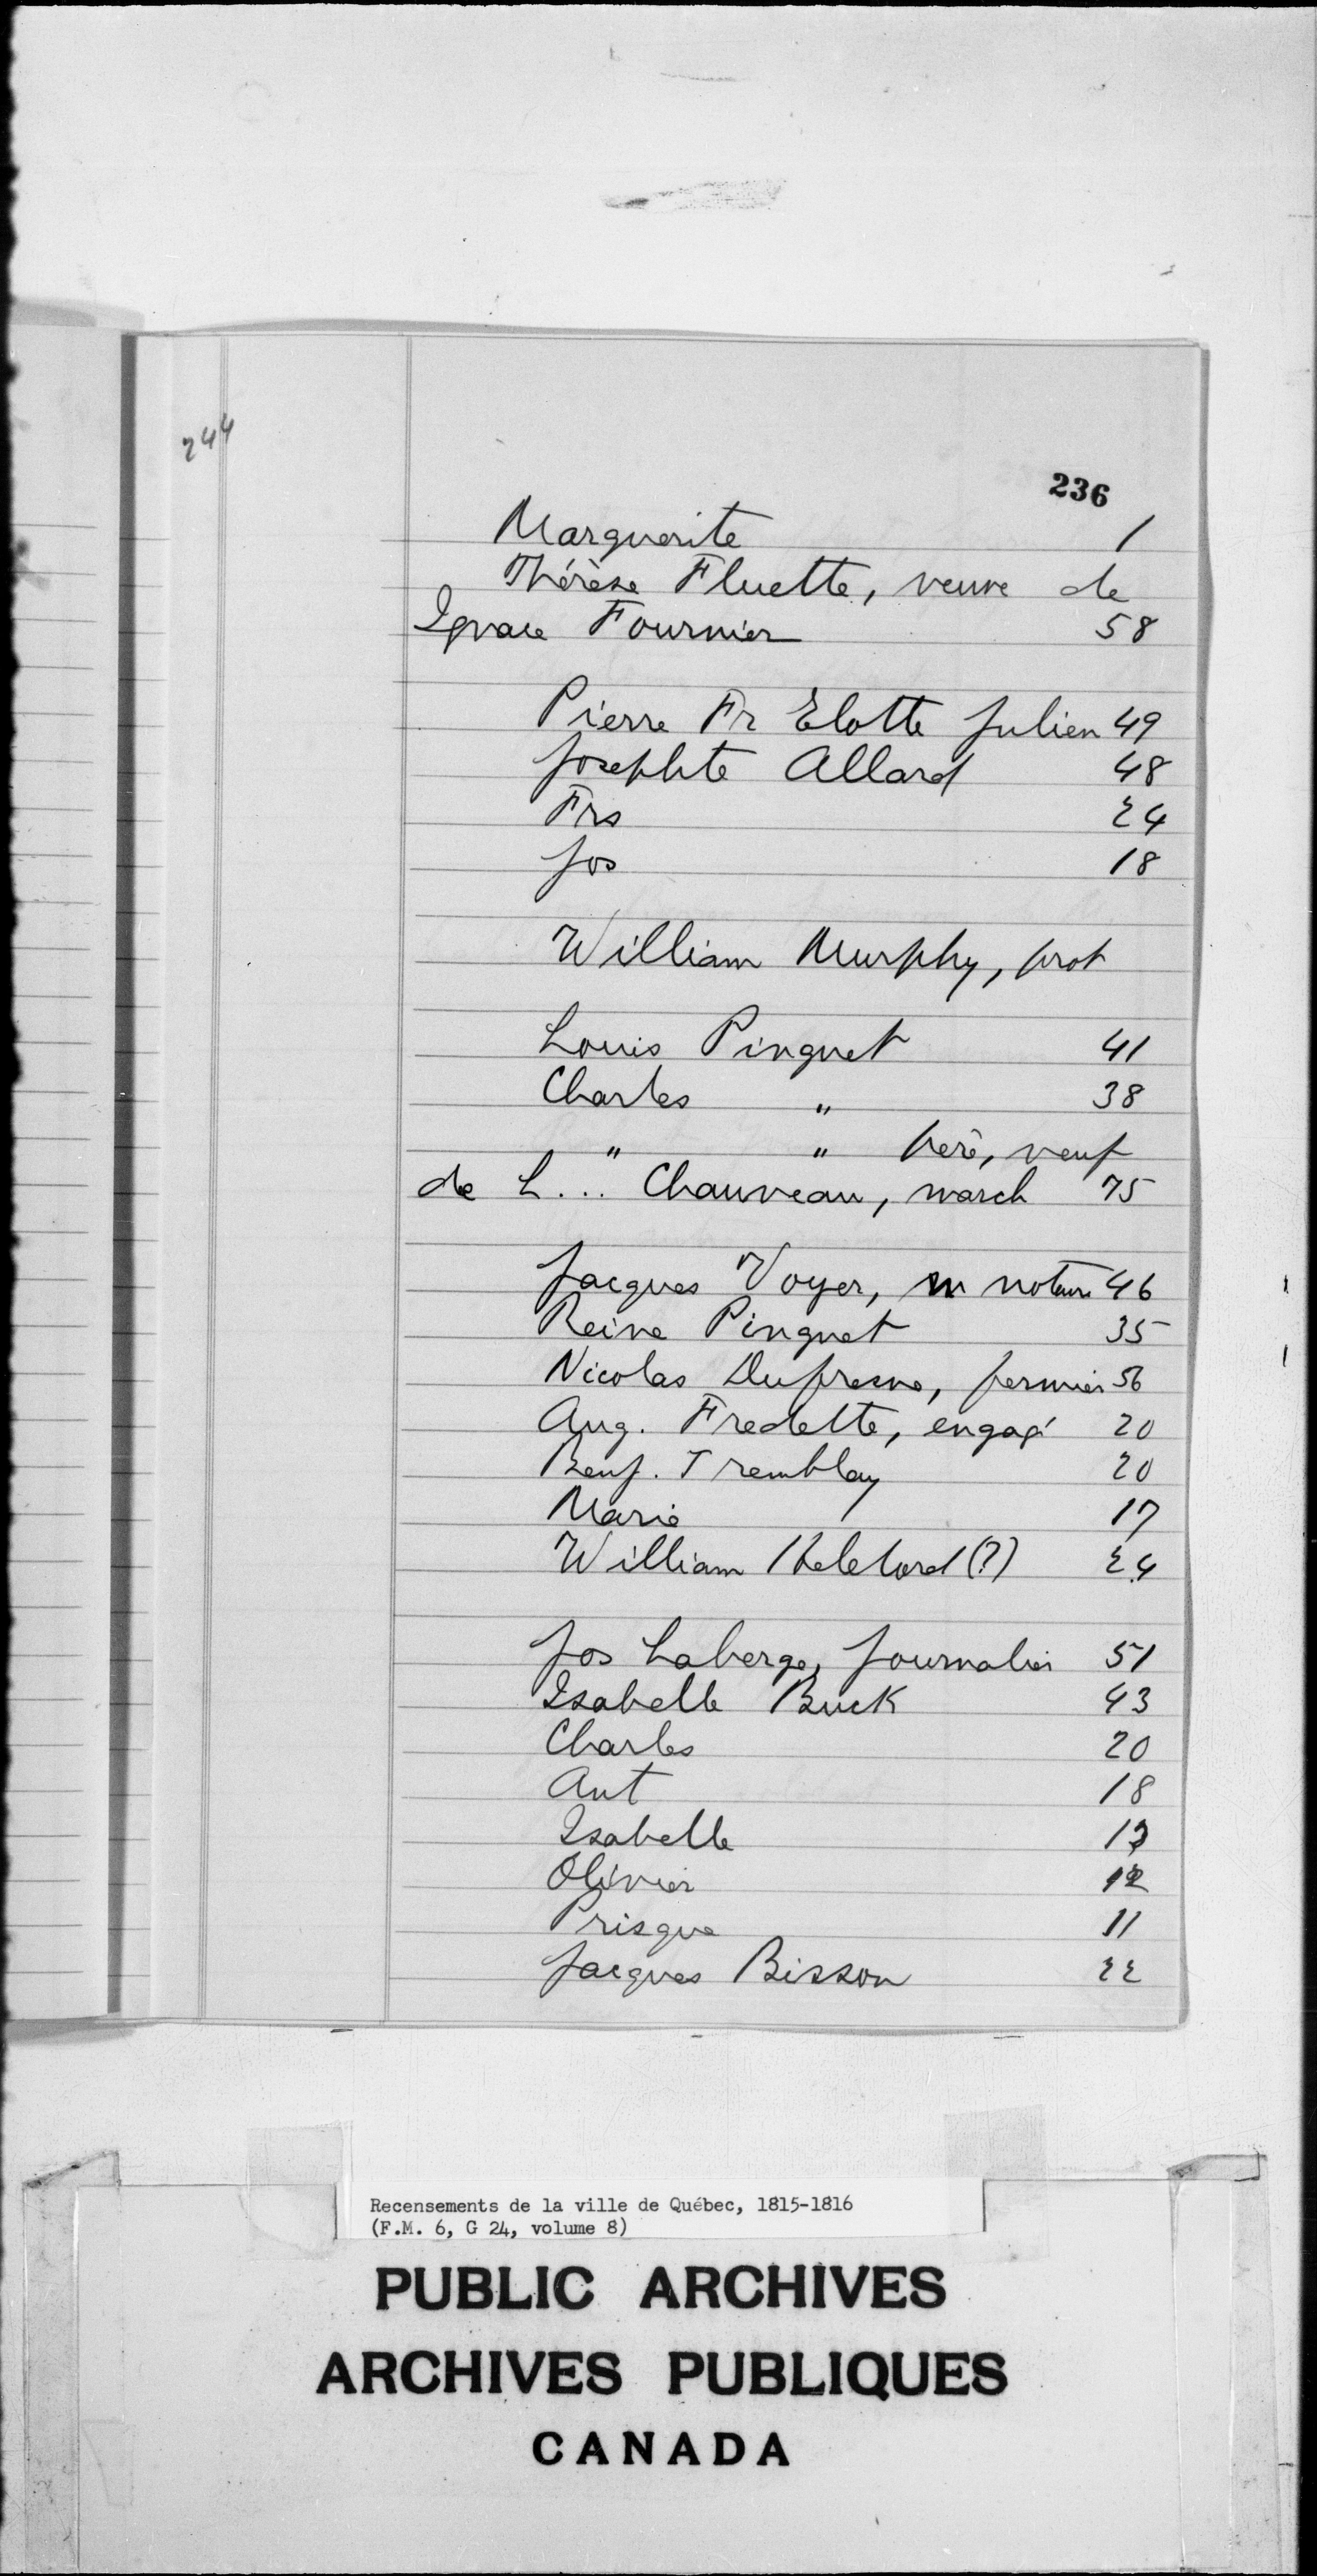 244
236
Marguerite 1
Thérèse Fluette, veuve de
Ignace Fournier 58
Pierre Fr Elotte Julien 49
Josephte Allard 48
Frs 24
Jos 18
William Murphy, prot
Louis Pinguet 41
Charles " 38
" " père, veuf
de L... Chauveau, march 75
Jacques Voyer, notaire 46
Reine Pinguet 35
Nicolas Dufresne, fermier 56
Aug. Fredette, engagé 20
Benj. Tremblay 20
Marie 17
William (?) 24
Jos Laberge, Journalier 51
Isabelle Buck 43
Charles 20
Ant 18
Isabelle
Olivier 12
Prisque 11
Jacques Bisson 22
Recensements de la ville de Québec, 1815-1816
(F.M. 6, G 24, volume 8)
PUBLIC ARCHIVES
ARCHIVES PUBLIQUES
CANADA